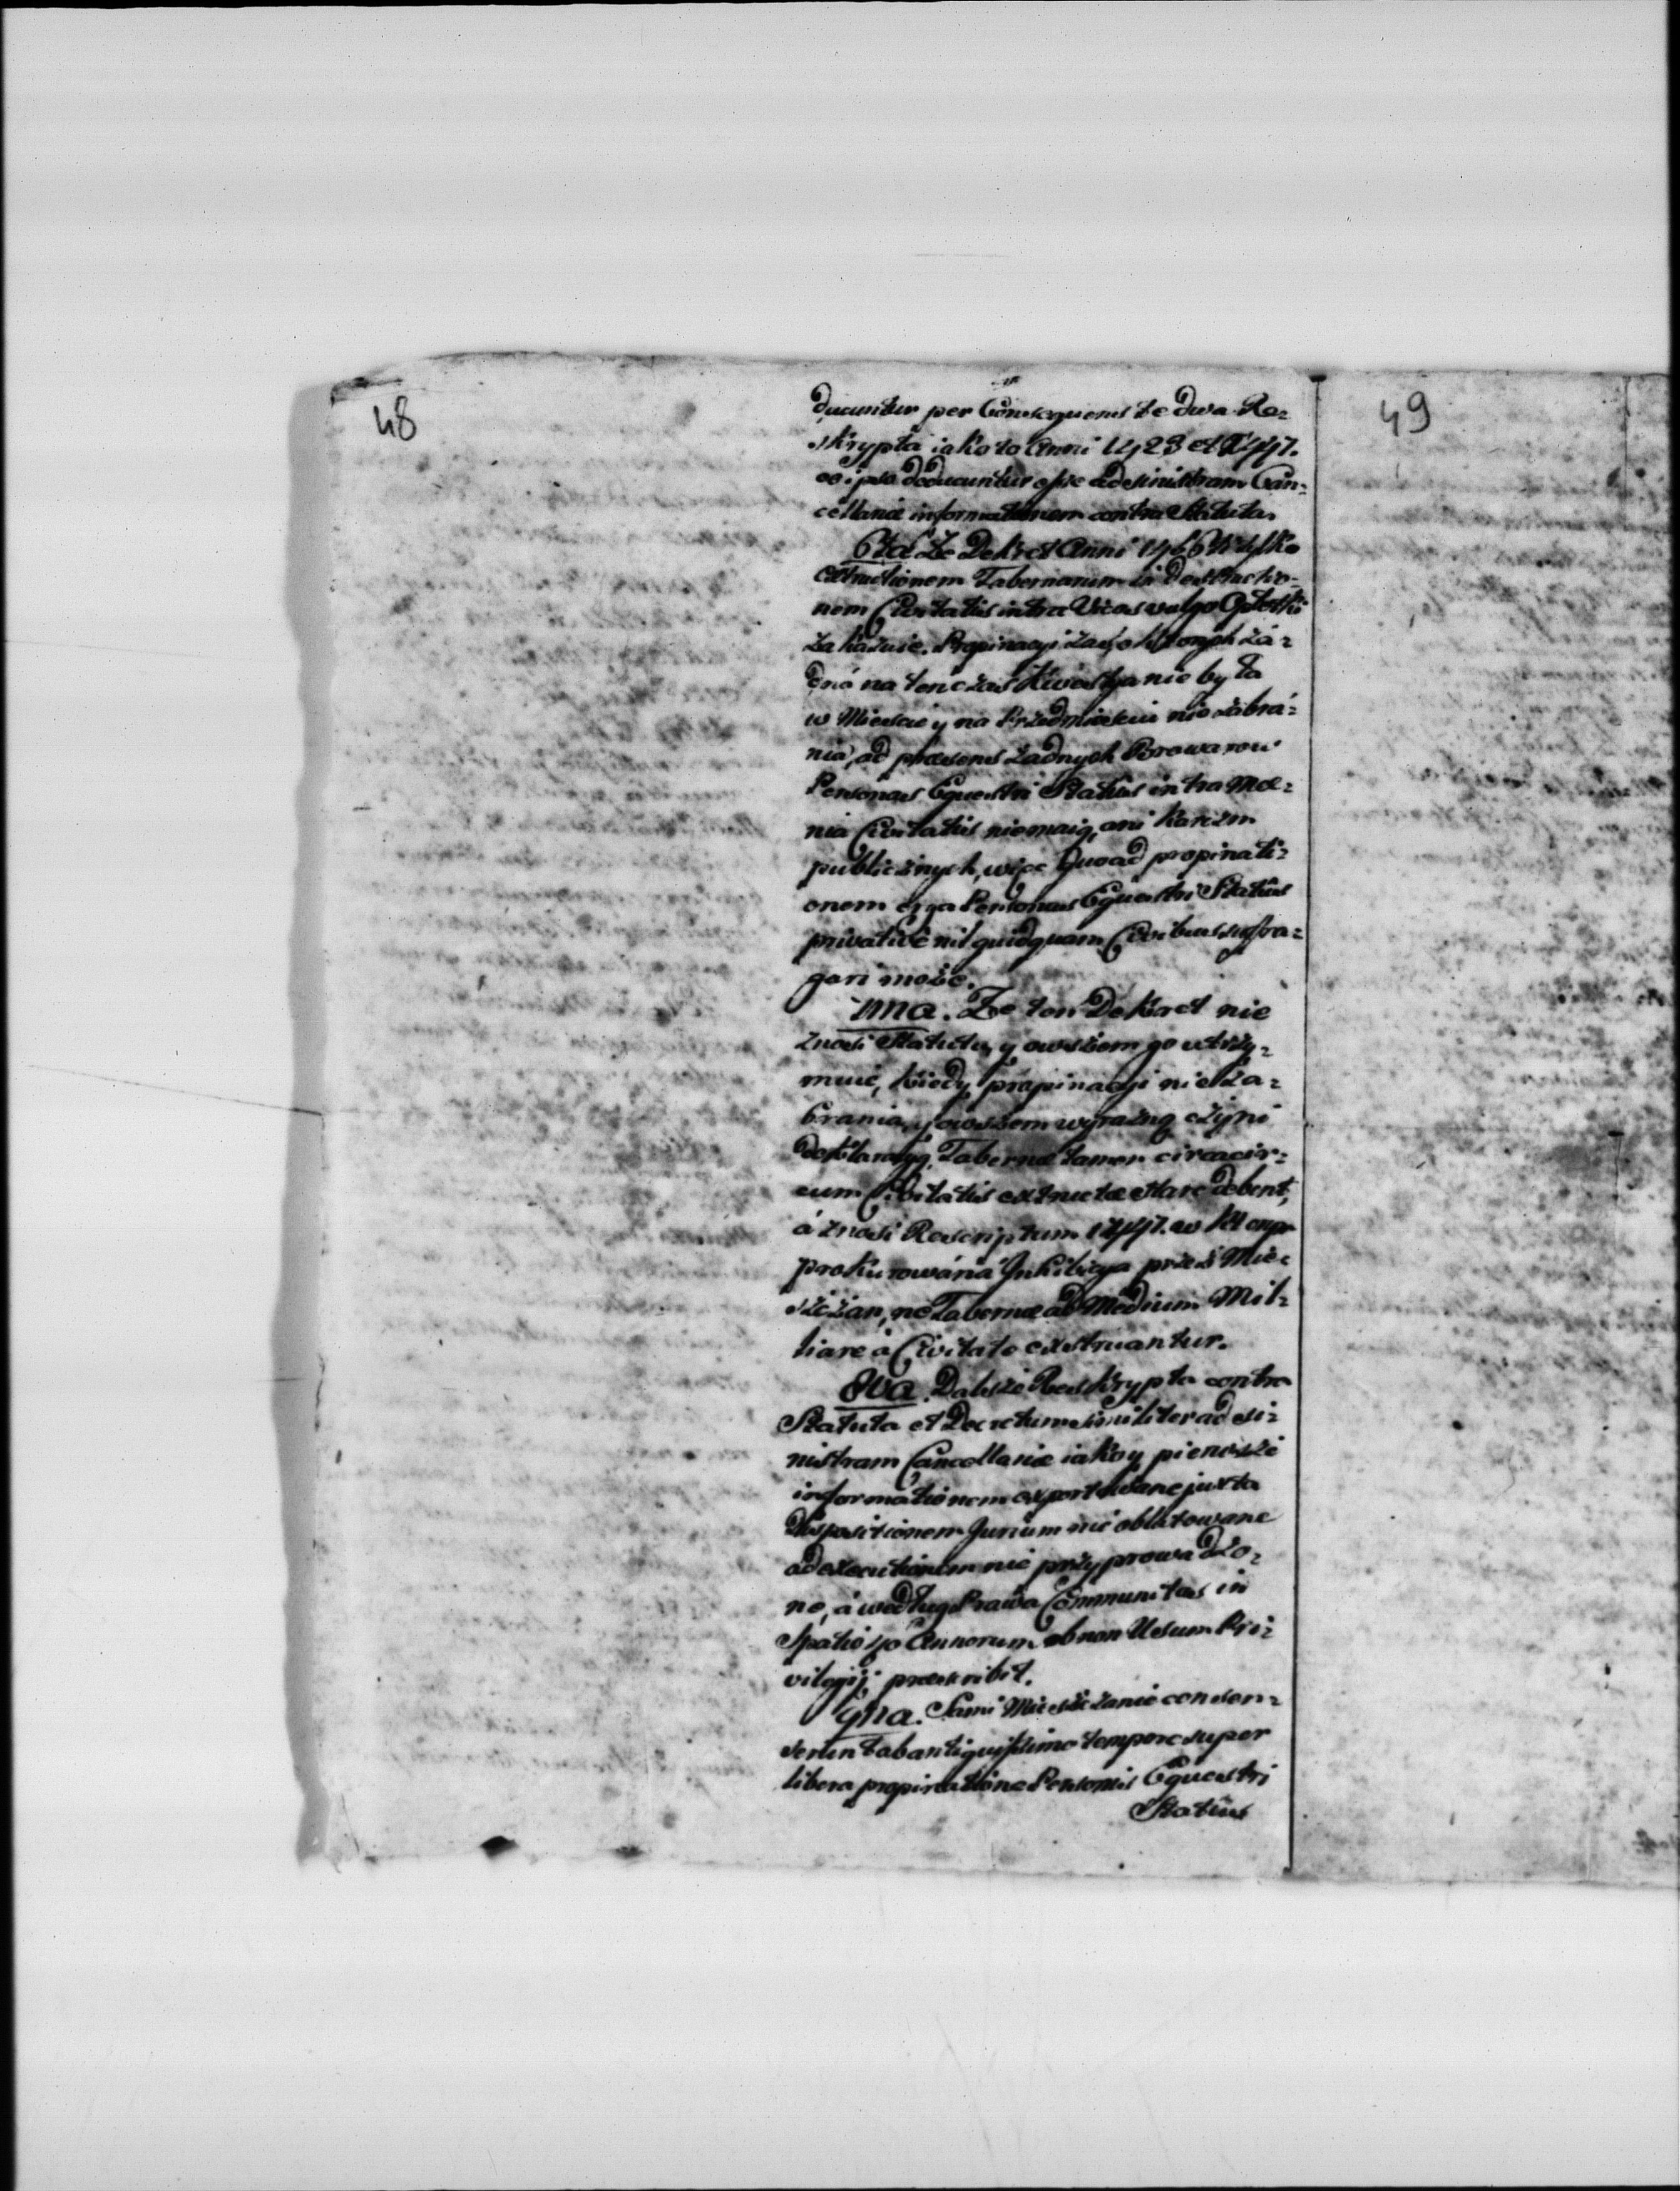 48
49
ducuntur per Consequens te dwa Re=
skrypta iako to Anni 1423 et 1447.
eo ipso dedducuntur esse ad sinistram Can=
cellariæ informationem contra Statuta
6ta Że Dekret Anni 1466 tylko
extructionem Tabernarum in destructio=
nem Civitatis intra Vicos vulgo Opłotki
zakazuie. Propinacyi zaś o ktorych ża=
dná na tenczas Kwestya nie była
w Miescie y na Przedmiesciu nie zabra=
nia, ad præsens żadnych Browarow
Personas Equestri Status intra Mœ=
nia Civitatis niemaią, ani karczm
publicznych, więc quoad propinati=
onem erga Personas Equestri Status
privative nil quidquam Civibus sufra=
gari może.
7ma. Że ten Dekret nie
znosi Statutu, y owszem go utrzy=
muie, kiedy propinacyi nie za=
brania, y owszem wyrazną czyni
deklaracyą, Tabernæ tamen circa cir=
cum Civitatis extructæ stare debent,
á znosi Rescriptum 1447. w ktorym
prokurowána Inhibicya przez Mie=
szczan, ne Tabernæ ad Medium Mil=
liare à Civitate exstruantur.
8va. Dalsze Reskrypta contra
Statuta et Decretum similiter ad si=
nistram Cancellariæ iako y pierwsze
informationem exportowane juxta
dispositionem Jurium nie oblatowane
ad executionem nie przyprowadzo=
ne, á według Prawa Communitas in
Spatio 40 Annorum, ob non Usum Pri=
vilegij præscribit.
9na. Sami Mieszczanie consen=
serunt ab antiquissimo tempore super
libera propinatione Personis Equestri
Statûs